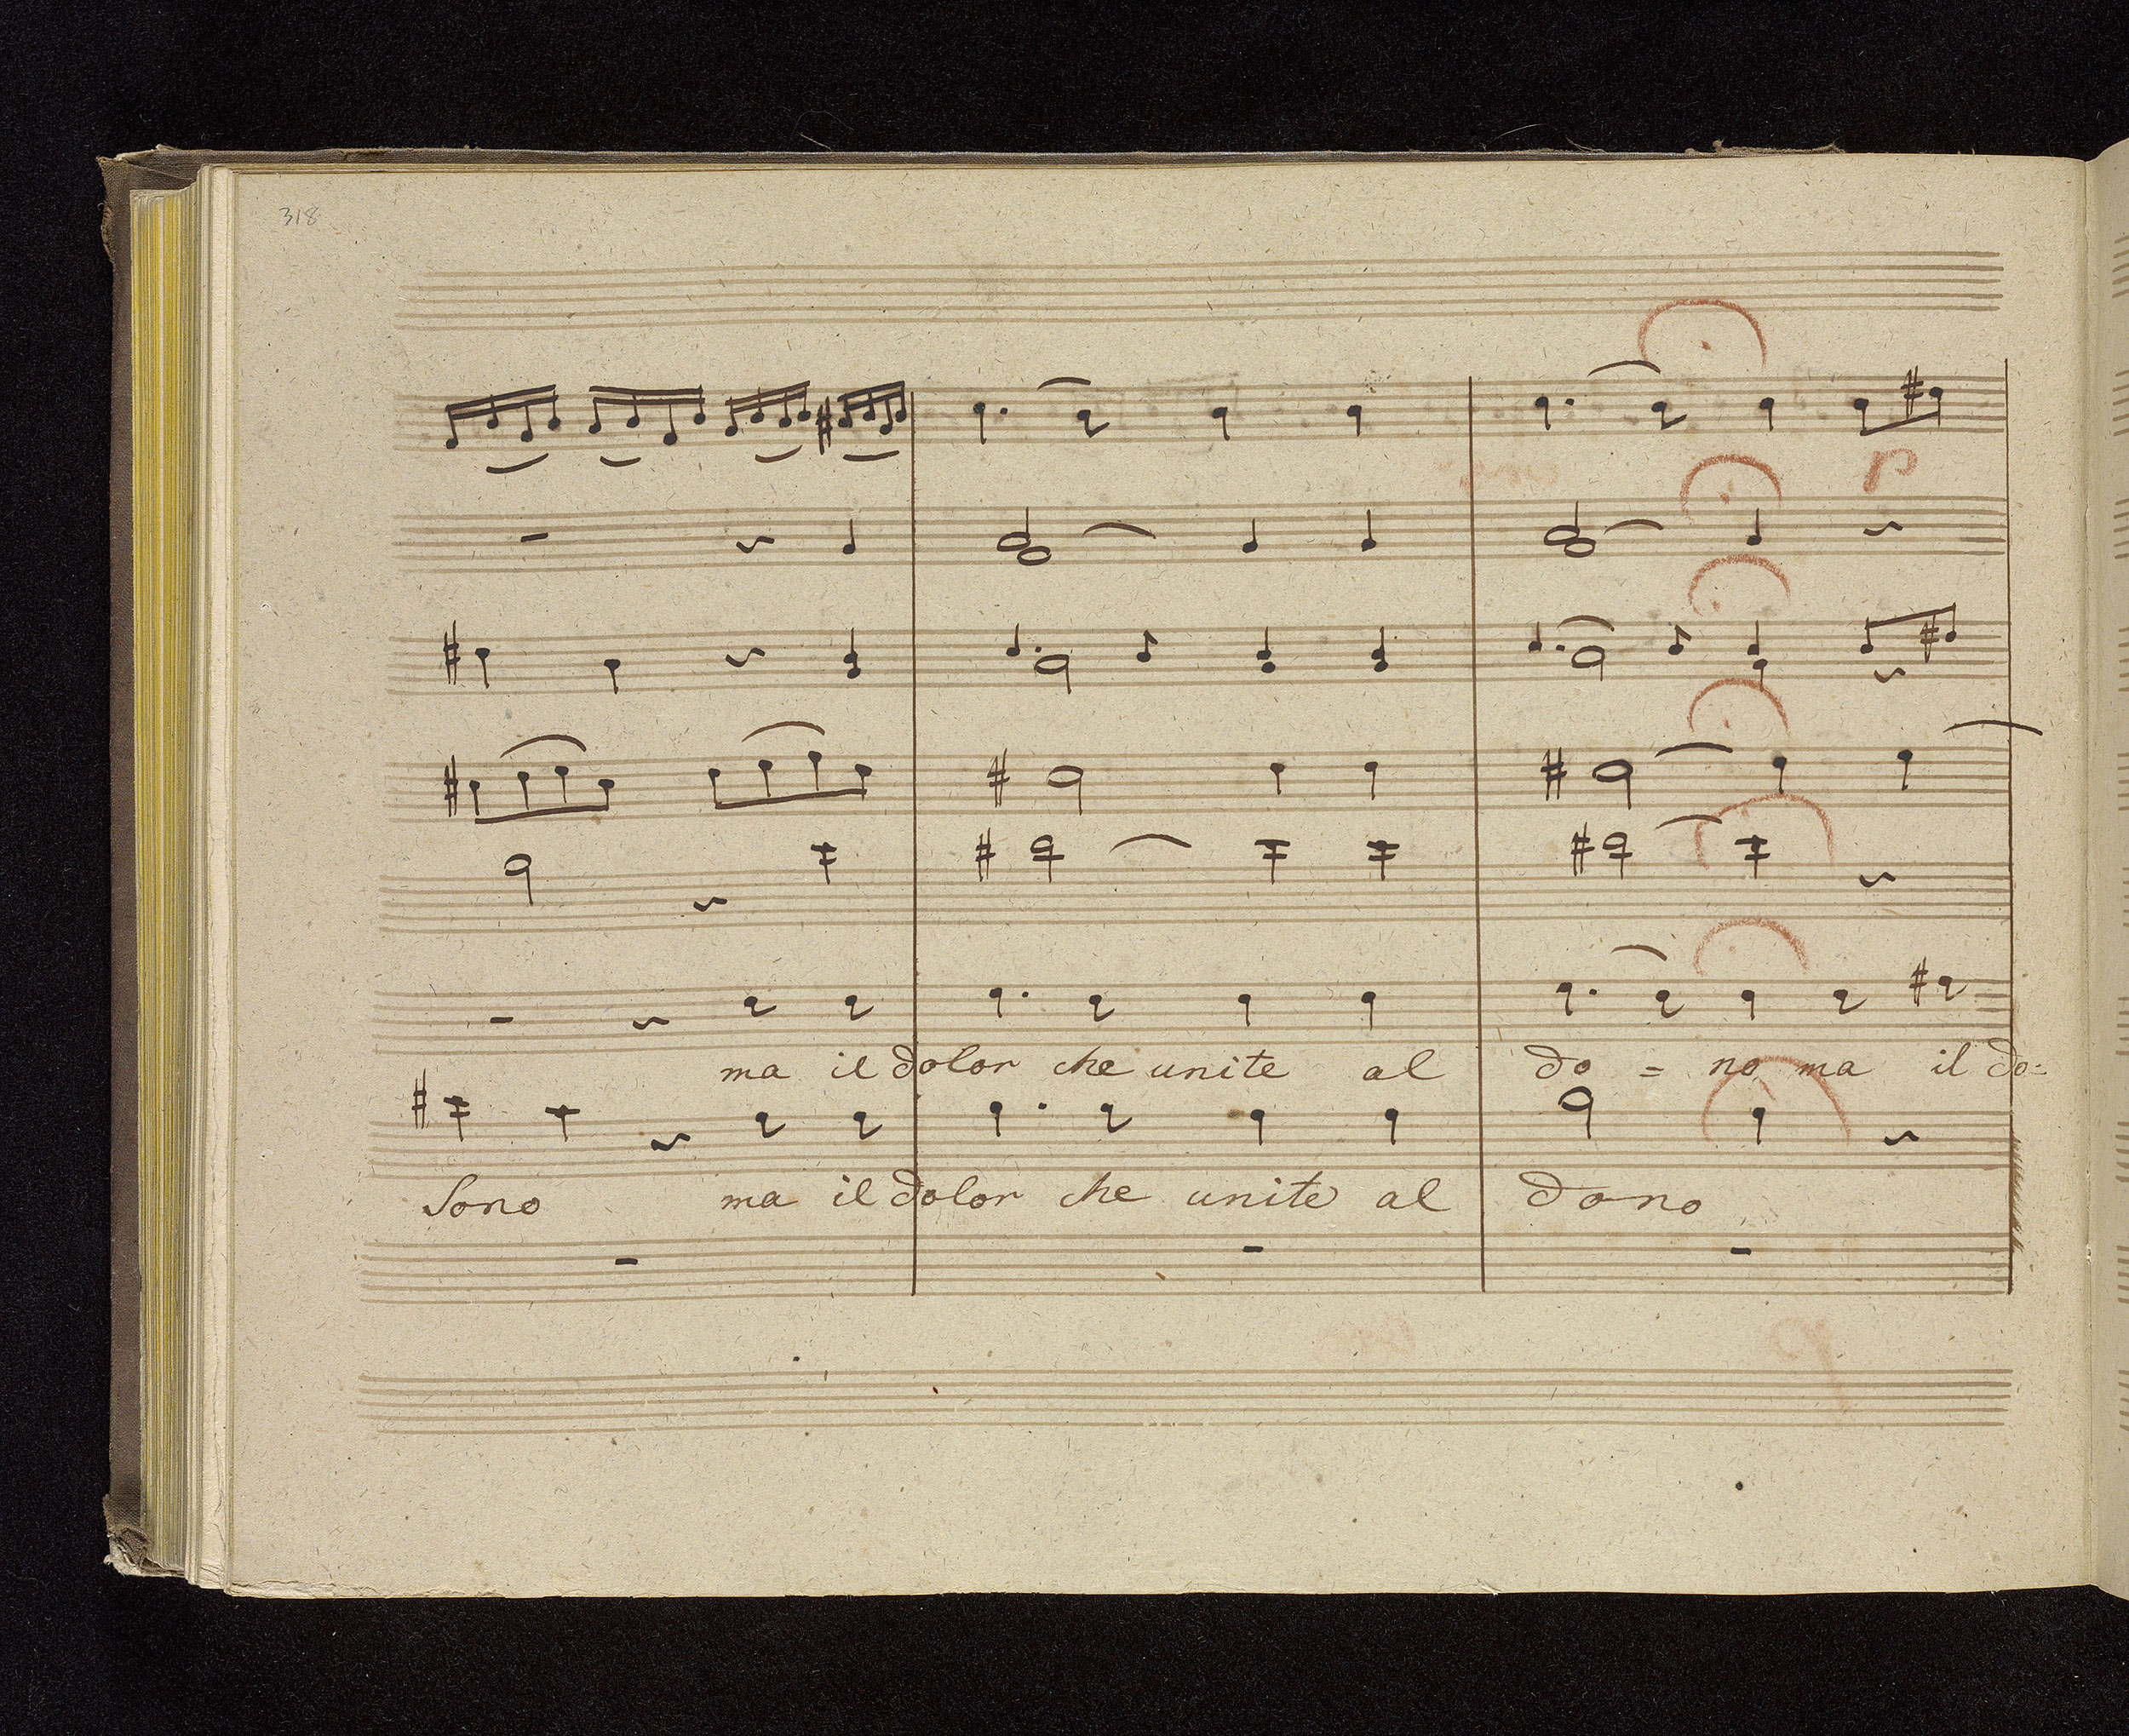 318
p
ma il dolor che unite al do = no ma il do=
Sono ma il dolor che unite al dono